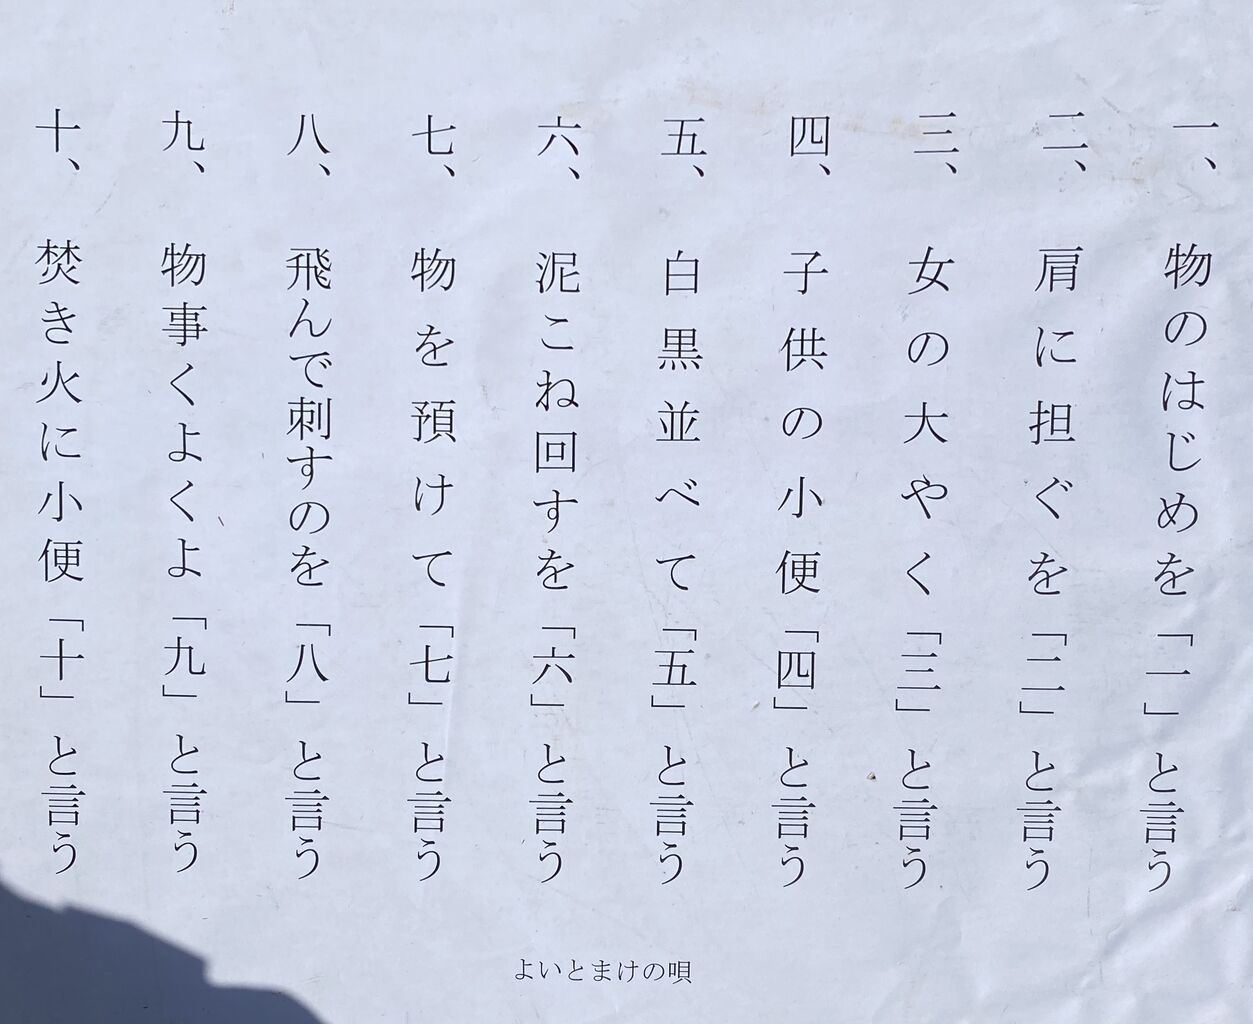 一、物のはじめを「一」と言う
二、肩に担ぐを「二」と言う
三、女の大やく「三」と言う
四、子供の小便「四」と言う
五、白黒並べて「五」と言う
六、泥こね回すを「六」と言う
七、物を預けて「七」と言う
八、飛んで刺すのを「八」と言う
九、物事くよくよ「九」と言う
十、焚き火に小便「十」と言う
よいとまけの唄